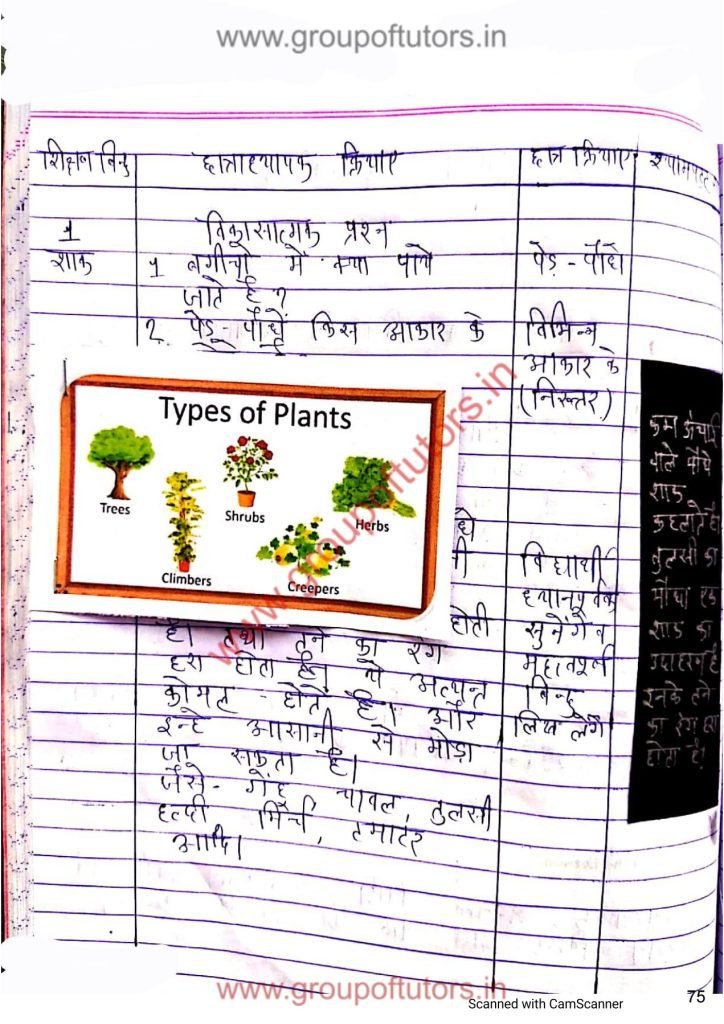 www.groupoftutors.in
शिक्षण बिन्दु
छात्राध्यापक क्रियाएं
छात्र क्रियाएं
श्यामपट्ट
1
शाक
विकासात्मक प्रश्न
1 बगीचों में क्या पाये
जाते है?
2. पेड़-पौधे किस आकार के
पेड़-पौधे
विभिन्न
आकार के
(निरुत्तर)
Types of Plants
Trees
Shrubs
Herbs
Climbers
Creepers
होती
है। तथा तने का रंग
हरा होता है। ये अत्यन्त
कोमल होते है। और
इन्हे आसानी से मोड़ा
जा सकता है।
जैसे- गेंहू, चावल, तुलसी
हल्दी मिर्च, टमाटर
आदि।
विद्यार्थी
ध्यानपूर्वक
सुनेंगे व
महत्वपूर्ण
बिन्दु
लिख लेंगे
कम ऊंचाई
वाले पौधे
शाक
कहलाते है
तुलसी का
पौधा एक
शाक का
उदाहरण है
इनके तने
का रंग हरा
होता है।
www.groupoftutors.in
www.groupoftutors.in
Scanned with CamScanner
75